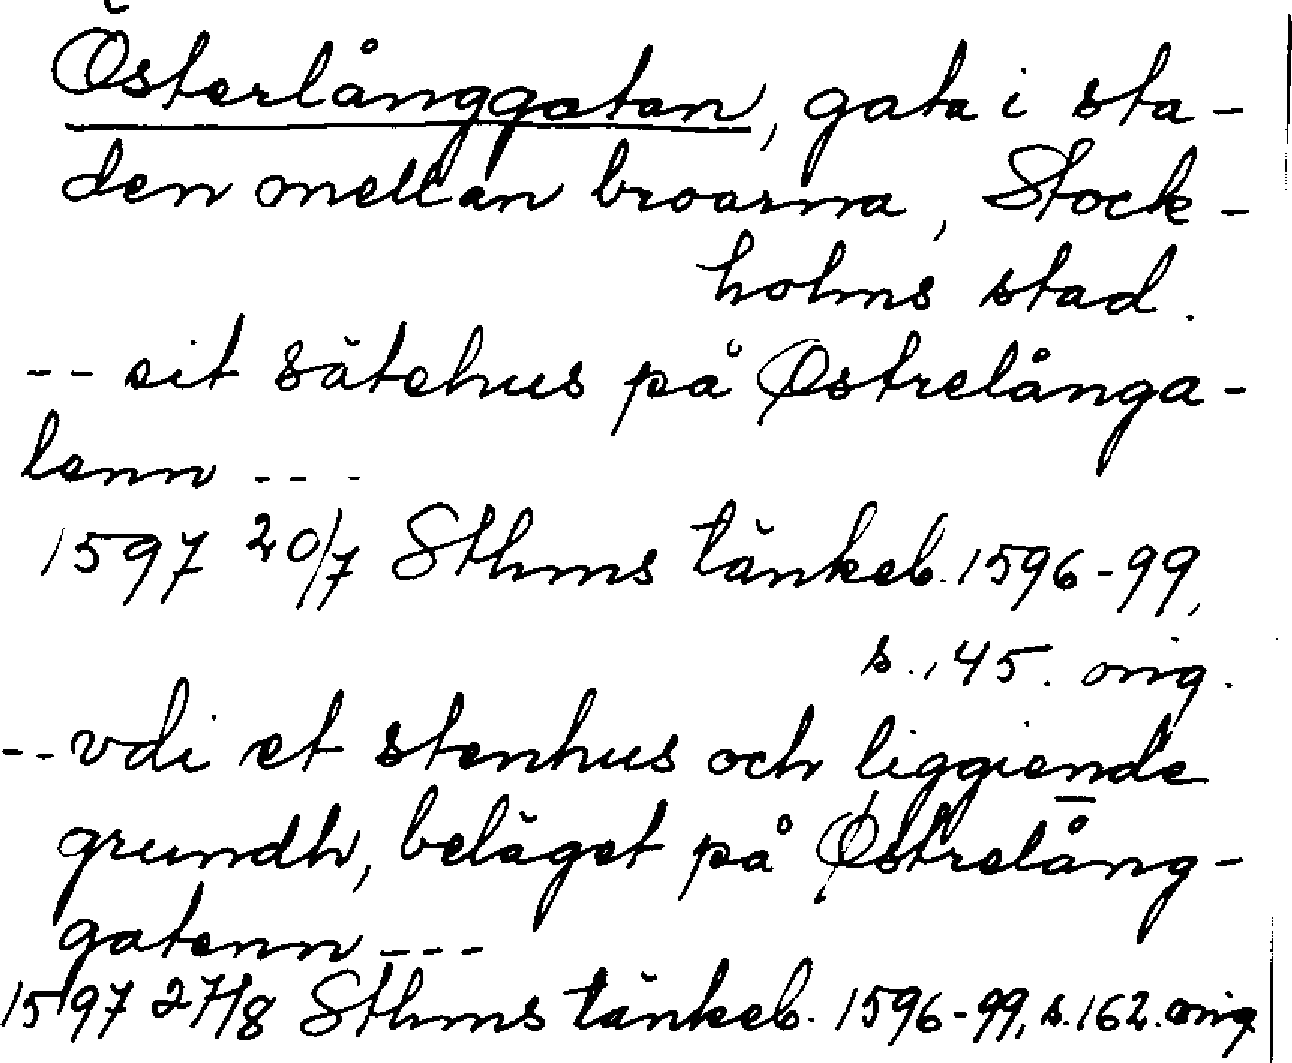 Österlånggatan, gata i sta-
den mellan broarna, Stock-
holms stad.
-- eit sätehus på Østrelånga-
tenn ---
1597 20/7 Sthms tänkeb. 1596-99,
s. 145. orig.
-- vdi et stenhus och liggiende
grundh, beläget på Østrelång-
gatenn ---
1597 27/8 Sthms tänkeb. 1596-99, s. 162. orig